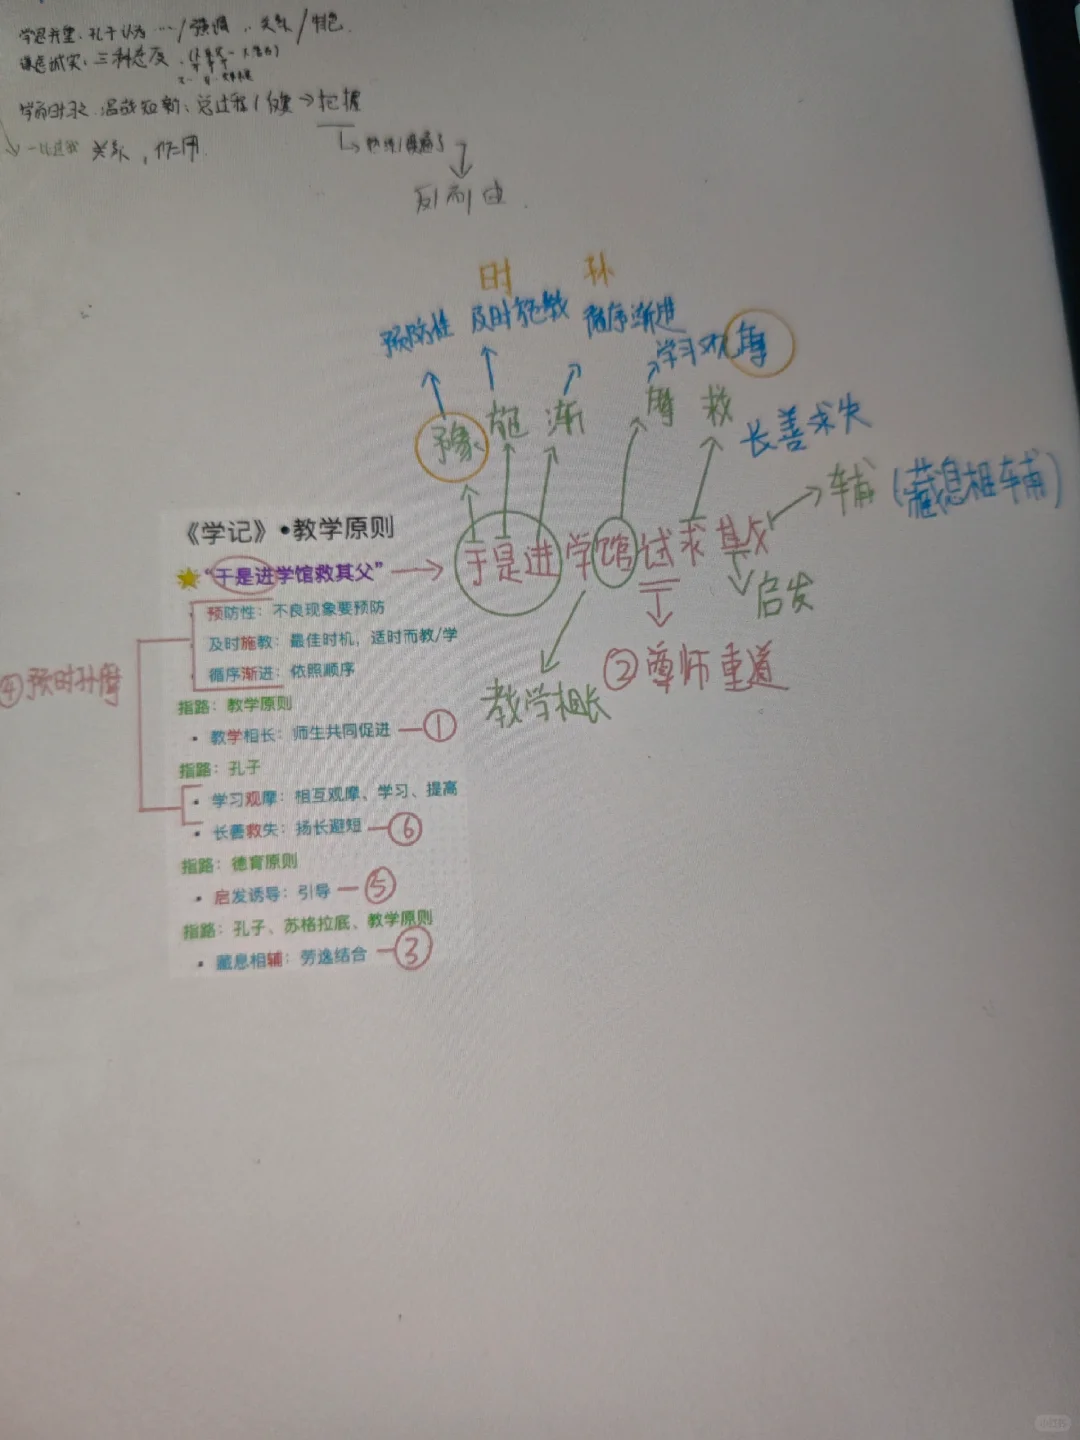 学思并重：孔子认为…/强调，关系/特色
谦虚诚实：三种态度
学而时习 温故知新：总过程/反复→把握
关系，作用
反刍
时 孙
预防性 及时施教 循序渐进
学习观摩
豫 施 渐 摩 救
长善求失
辅（藏息相辅）
《学记》·教学原则
“于是进学馆救其父” → 于是进学馆试求其父
启发
预防性：不良现象要预防
及时施教：最佳时机，适时而教/学
② 尊师重道
循序渐进：依照顺序
④ 预时孙摩
教学相长
指路：教学原则
· 教学相长：师生共同促进 — ①
指路：孔子
· 学习观摩：相互观摩、学习、提高
· 长善救失：扬长避短 — ⑥
指路：德育原则
· 启发诱导：引导 — ⑤
指路：孔子、苏格拉底、教学原则
· 藏息相辅：劳逸结合 — ③